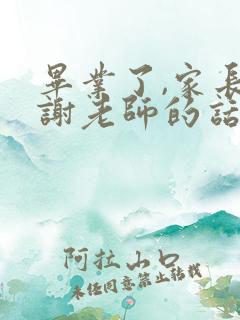 畢業了,家長
謝老師的話
阿拉山口
未任同意禁止转载